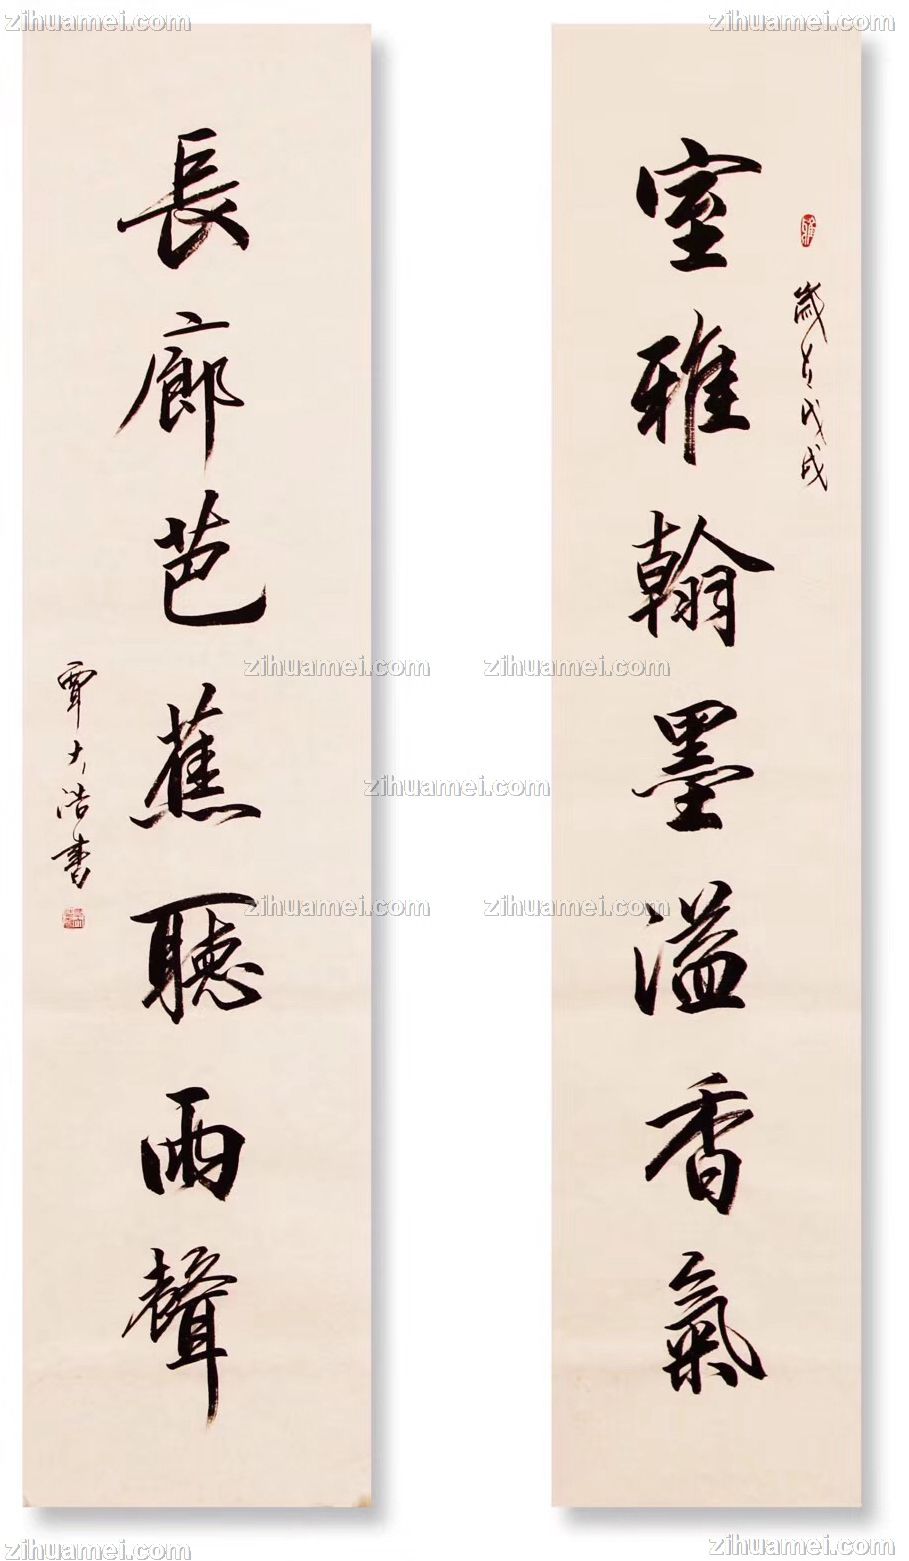 zihuamei.com zihuamei.com zihuamei.com zihuamei.com
歲在戊戌
室雅翰墨溢香氣
長廊芭蕉聽雨聲
覃大浩書
zihuamei.com zihuamei.com
zihuamei.com
zihuamei.com zihuamei.com
zihuamei.com zihuamei.com zihuamei.com zihuamei.com